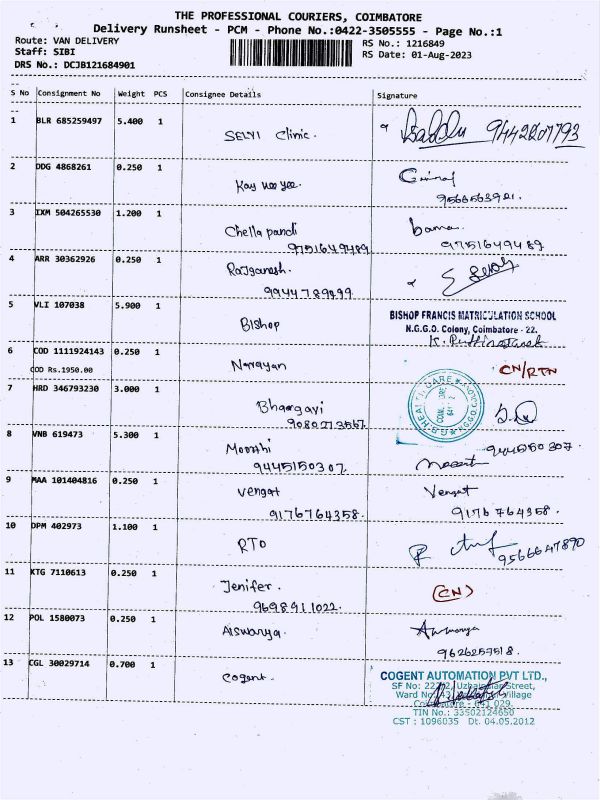 THE PROFESSIONAL COURIERS, COIMBATORE
Delivery Runsheet - PCM - Phone No.:0422-3505555 - Page No.:1
Route: VAN DELIVERY
Staff: SIBI
DRS No.: DCJB121684901
RS No.: 1216849
RS Date: 01-Aug-2023
S No Consignment No Weight PCS Consignee Details Signature
1 BLR 685259497 5.400 1 SELVI Clinic. 9442207793
2 DDG 4868261 0.250 1
9566563921.
3 IXM 504265530 1.200 1 Chella pandi bama.
9751649489 9751649489
4 ARR 30362926 0.250 1 Rajganesh.
9944789899
5 VLI 107038 5.900 1 Bishop
BISHOP FRANCIS MATRICULATION SCHOOL
N.G.G.O. Colony, Coimbatore - 22.
6 COD 1111924143 0.250 1 Narayan CN/RTN
COD Rs.1950.00
7 HRD 346793230 3.000 1 Bhargavi
9080273567
HEALTH CARE
8 VNB 619473 5.300 1 Moorthi 9445150307
9445150307
9 MAA 101404816 0.250 1 Vengat Vengat
9176764358. 9176764358.
10 DPM 402973 1.100 1 RTO
9566647890
11 KTG 7110613 0.250 1 Jenifer. (CN)
9698911022.
12 POL 1580073 0.250 1 Aiswarya.
9626257518.
13 CGL 30029714 0.700 1 Cogent.
COGENT AUTOMATION PVT LTD.,
SF No: Street,
Ward No Village
Coimbatore - 641 029.
TIN No.: 33502124650
CST : 1096035 Dt. 04.05.2012